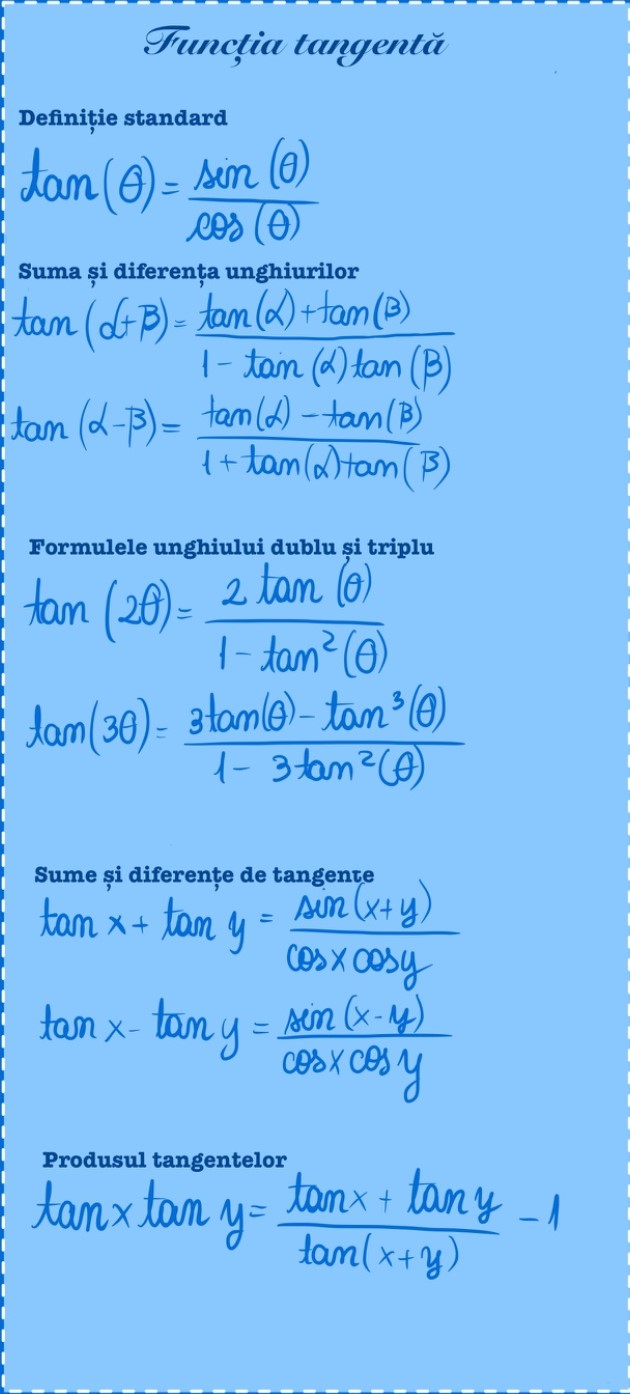 Funcția tangentă
Definiție standard
tan(θ) = sin(θ)
cos(θ)
Suma și diferența unghiurilor
tan(α+β) = tan(α)+tan(β)
1 - tan(α)tan(β)
tan(α-β) = tan(α) - tan(β)
1 + tan(α)tan(β)
Formulele unghiului dublu și triplu
tan(2θ) = 2 tan(θ)
1 - tan²(θ)
tan(3θ) = 3tan(θ) - tan³(θ)
1 - 3tan²(θ)
Sume și diferențe de tangente
tan x + tan y = sin(x+y)
cos x cos y
tan x - tan y = sin(x-y)
cos x cos y
Produsul tangentelor
tan x tan y = tan x + tan y - 1
tan(x+y)